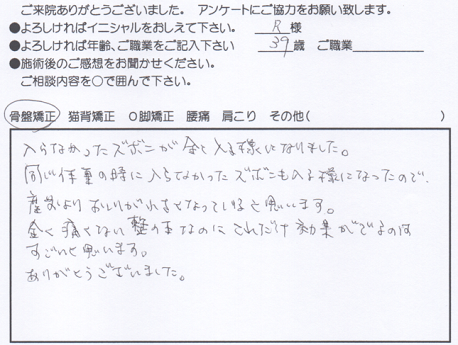 ご来院ありがとうございました。 アンケートにご協力をお願い致します。
●よろしければイニシャルをおしえて下さい。 R 様
●よろしければ年齢、ご職業をご記入下さい 39 歳 ご職業
●施術後のご感想をお聞かせください。
ご相談内容を○で囲んで下さい。
骨盤矯正 猫背矯正 O脚矯正 腰痛 肩こり その他( )
入らなかったズボンが全て入る様になりました。
同じ体重の時に入らなかったズボンも入る様になったので、
産前より おしりが小さくなっていると思います。
全く痛くない整体なのに これだけ効果がでるのは
すごいと思います。
ありがとうございました。